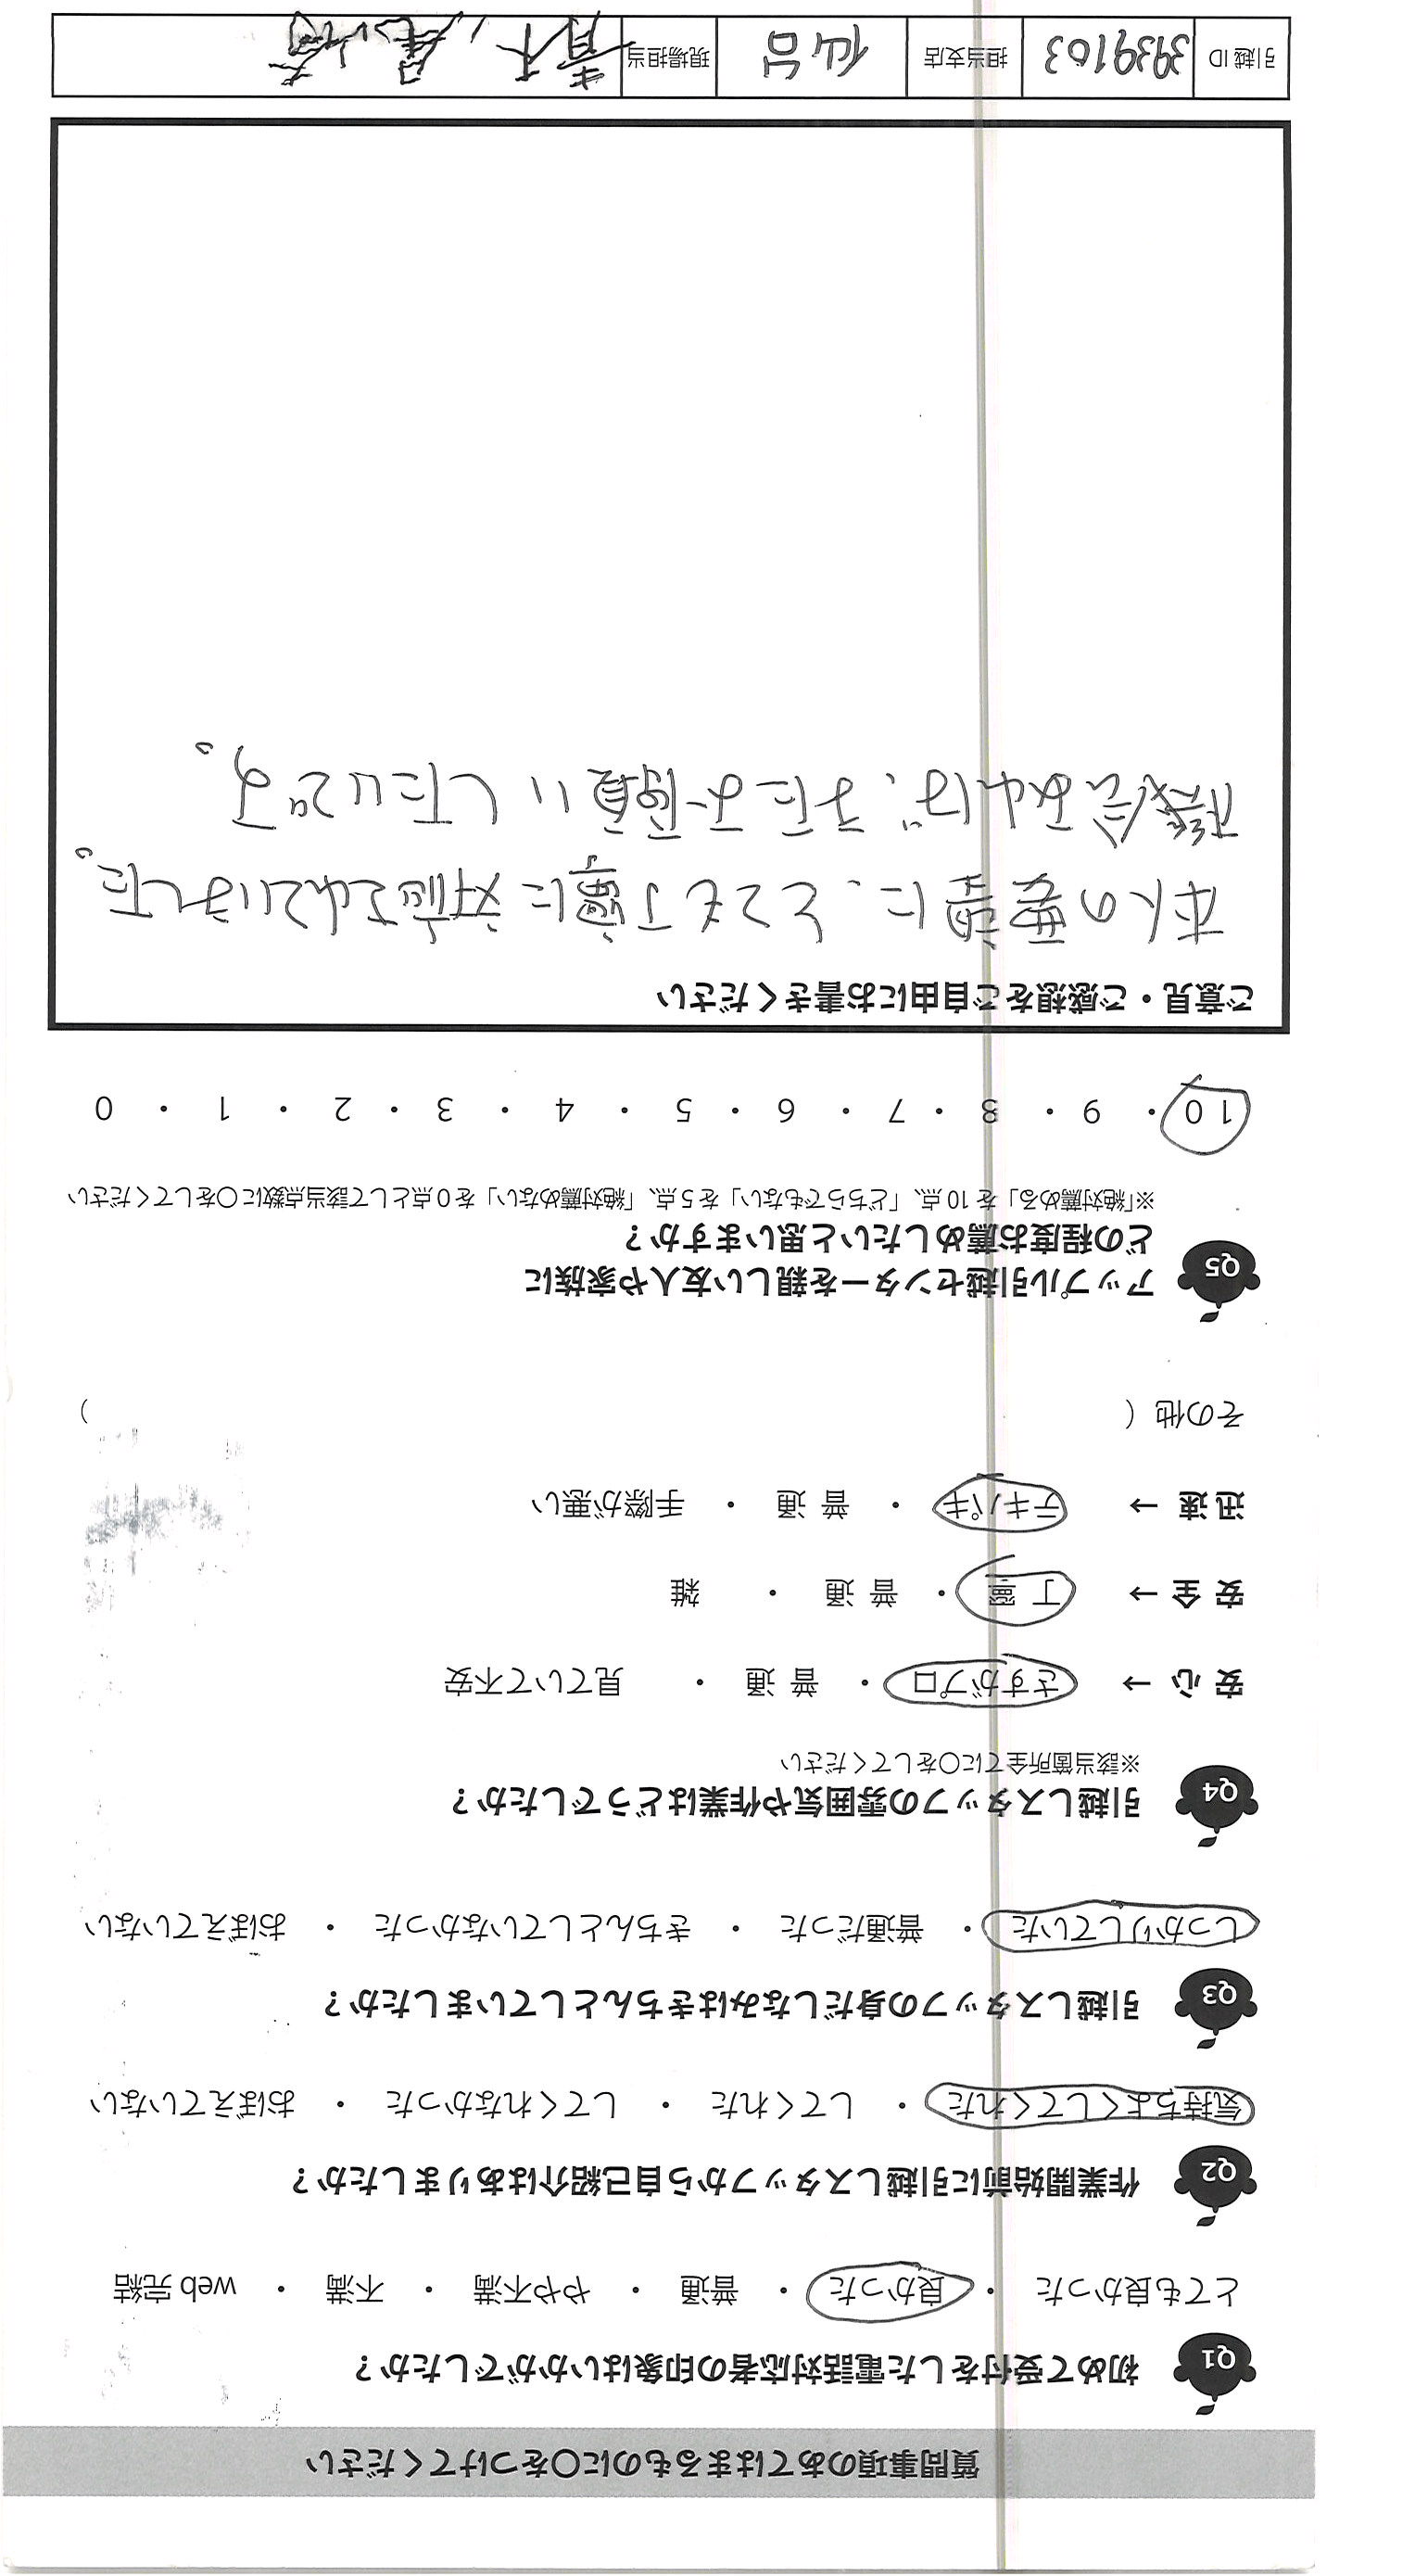 質問事項のあてはまるものに○をつけてください
Q1 初めて受付をした電話対応者の印象はいかがでしたか？
とても良かった ・ 良かった ・ 普通 ・ やや不満 ・ 不満 ・ web 完結
Q2 作業開始前に引越しスタッフから自己紹介はありましたか？
気持ちよくしてくれた ・ してくれた ・ してくれなかった ・ おぼえていない
Q3 引越しスタッフの身だしなみはきちんとしていましたか？
しっかりしていた ・ 普通だった ・ きちんとしていなかった ・ おぼえていない
Q4 引越しスタッフの雰囲気や作業はどうでしたか？
※該当箇所全てに○をしてください
安 心 → さすがプロ ・ 普 通 ・ 見ていて不安
安 全 → 丁 寧 ・ 普 通 ・ 雑
迅 速 → テキパキ ・ 普 通 ・ 手際が悪い
その他（ ）
Q5 アップル引越センターを親しい友人や家族に
どの程度お薦めしたいと思いますか？
※「絶対薦める」を 10 点、「どちらでもない」を 5 点、「絶対薦めない」を 0 点として該当点数に○をしてください
10 ・ 9 ・ 8 ・ 7 ・ 6 ・ 5 ・ 4 ・ 3 ・ 2 ・ 1 ・ 0
ご意見・ご感想をご自由にお書きください
本人の要望に、とても丁寧に対応されていました。
機会あれば、またお願いしたいです。
引越 ID 3939103 担当支店 仙台 現場担当 青木